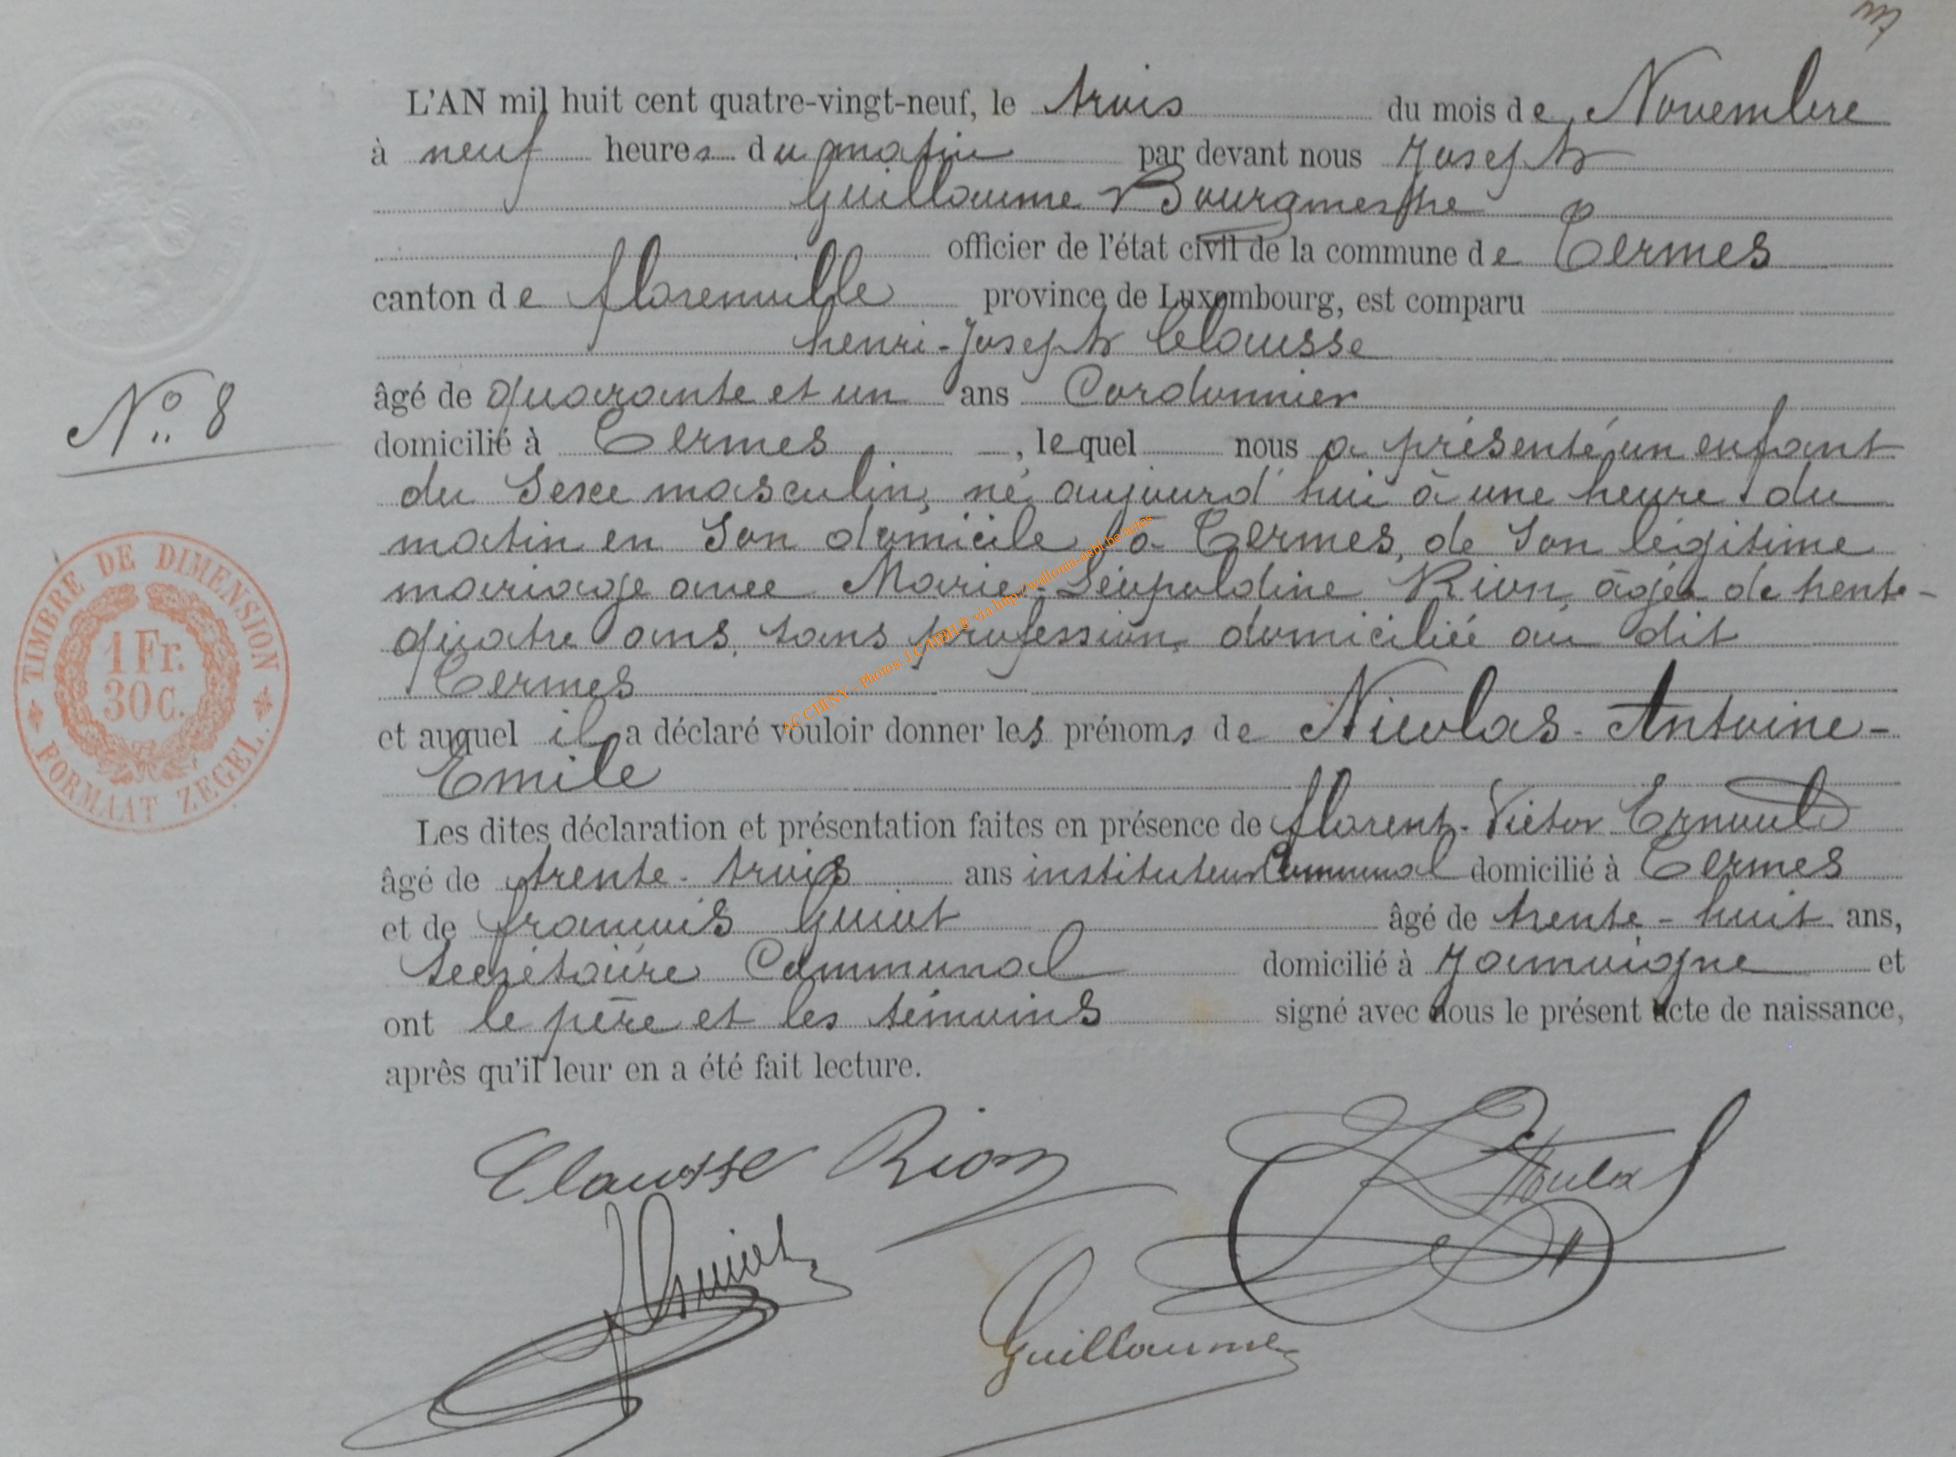 L'AN mil huit cent quatre-vingt-neuf, le trois du mois de Novembre
à neuf heures du matin par devant nous Joseph
Guillaume Bourgmestre
officier de l'état civil de la commune de Termes
canton de florenville province de Luxembourg, est comparu
henri-Joseph Clausse
N° 8
âgé de quarante et un ans Cordonnier
domicilié à Termes, lequel nous a présenté, un enfant
du Sexe masculin, né aujourd'hui à une heure du
matin en Son domicile à Termes, de Son légitime
mariage avec Marie-Léopoldine Rion, âgée de trente-
quatre ans, sans profession, domiciliée au dit
Termes
et auquel il a déclaré vouloir donner les prénoms de Nicolas-Antoine-
Emile
Les dites déclaration et présentation faites en présence de florent-Victor
âgé de trente-trois ans instituteur Communal domicilié à Termes
et de francois Guiot âgé de trente-huit ans,
Secrétaire Communal domicilié à Jamoigne et
ont le père et les témoins signé avec nous le présent acte de naissance,
après qu'il leur en a été fait lecture.
TIMBRE DE DIMENSION
1 Fr.
30 C.
FORMAAT ZEGEL.
Clausse Rion
Guiot
Guillaume